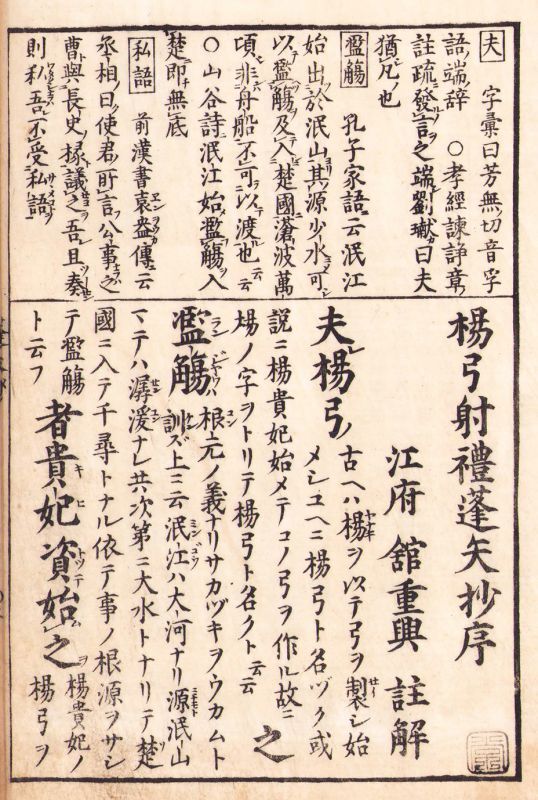 夫 字彙曰芳無切音孚
語端辞 ○孝經諫諍章
註疏發言之端劉瓛曰夫
猶凡也
濫觴 孔子家語云泯江
始出於泯山其源少水可
以濫觴及入楚國滄波萬
頃非舟船不可以渡也云云
○山谷詩泯江始濫觴入
楚即無底
私語 前漢書袁盎傳云
丞相曰使君所言公事之
曹與長史掾議之吾且奏
則私吾不受私語
楊弓射禮蓬矢抄序
江府 舘重興 註解
夫楊弓ノ 古ヘハ楊ヲ以テ弓ヲ製シ始
メシユヘニ楊弓ト名ヅク或
説ニ楊貴妃始メテコノ弓ヲ作ル故ニ
楊ノ字ヲトリテ楊弓ト名ク云云 之
濫觴 根元ノ義ナリサカヅキヲウカムト
訓ズ上ニ云泯江ハ大河ナリ源泯山
マテハ潺湲ナレ共次第ニ大水トナリテ楚
國ニ入テ千尋トナル依テ事ノ根源ヲサシ
テ濫觴ト云フ 者貴妃資始之 楊貴妃ノ
楊弓ヲ